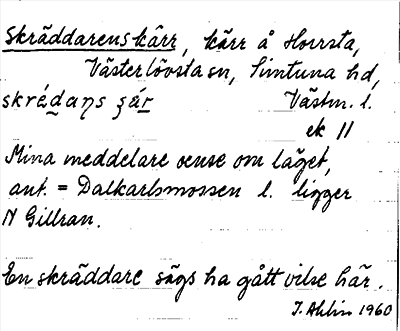 Skräddarens kärr, kärr å Horrsta,
Västerlövsta sn, Simtuna hd,
skrédaṇs çár Västm. l.
ek 11
Mina meddelare oense om läget,
ant. = Dalkarlsmossen l. ligger
N Gillran.
En skräddare sägs ha gått vilse här.
J. Ahlin 1960